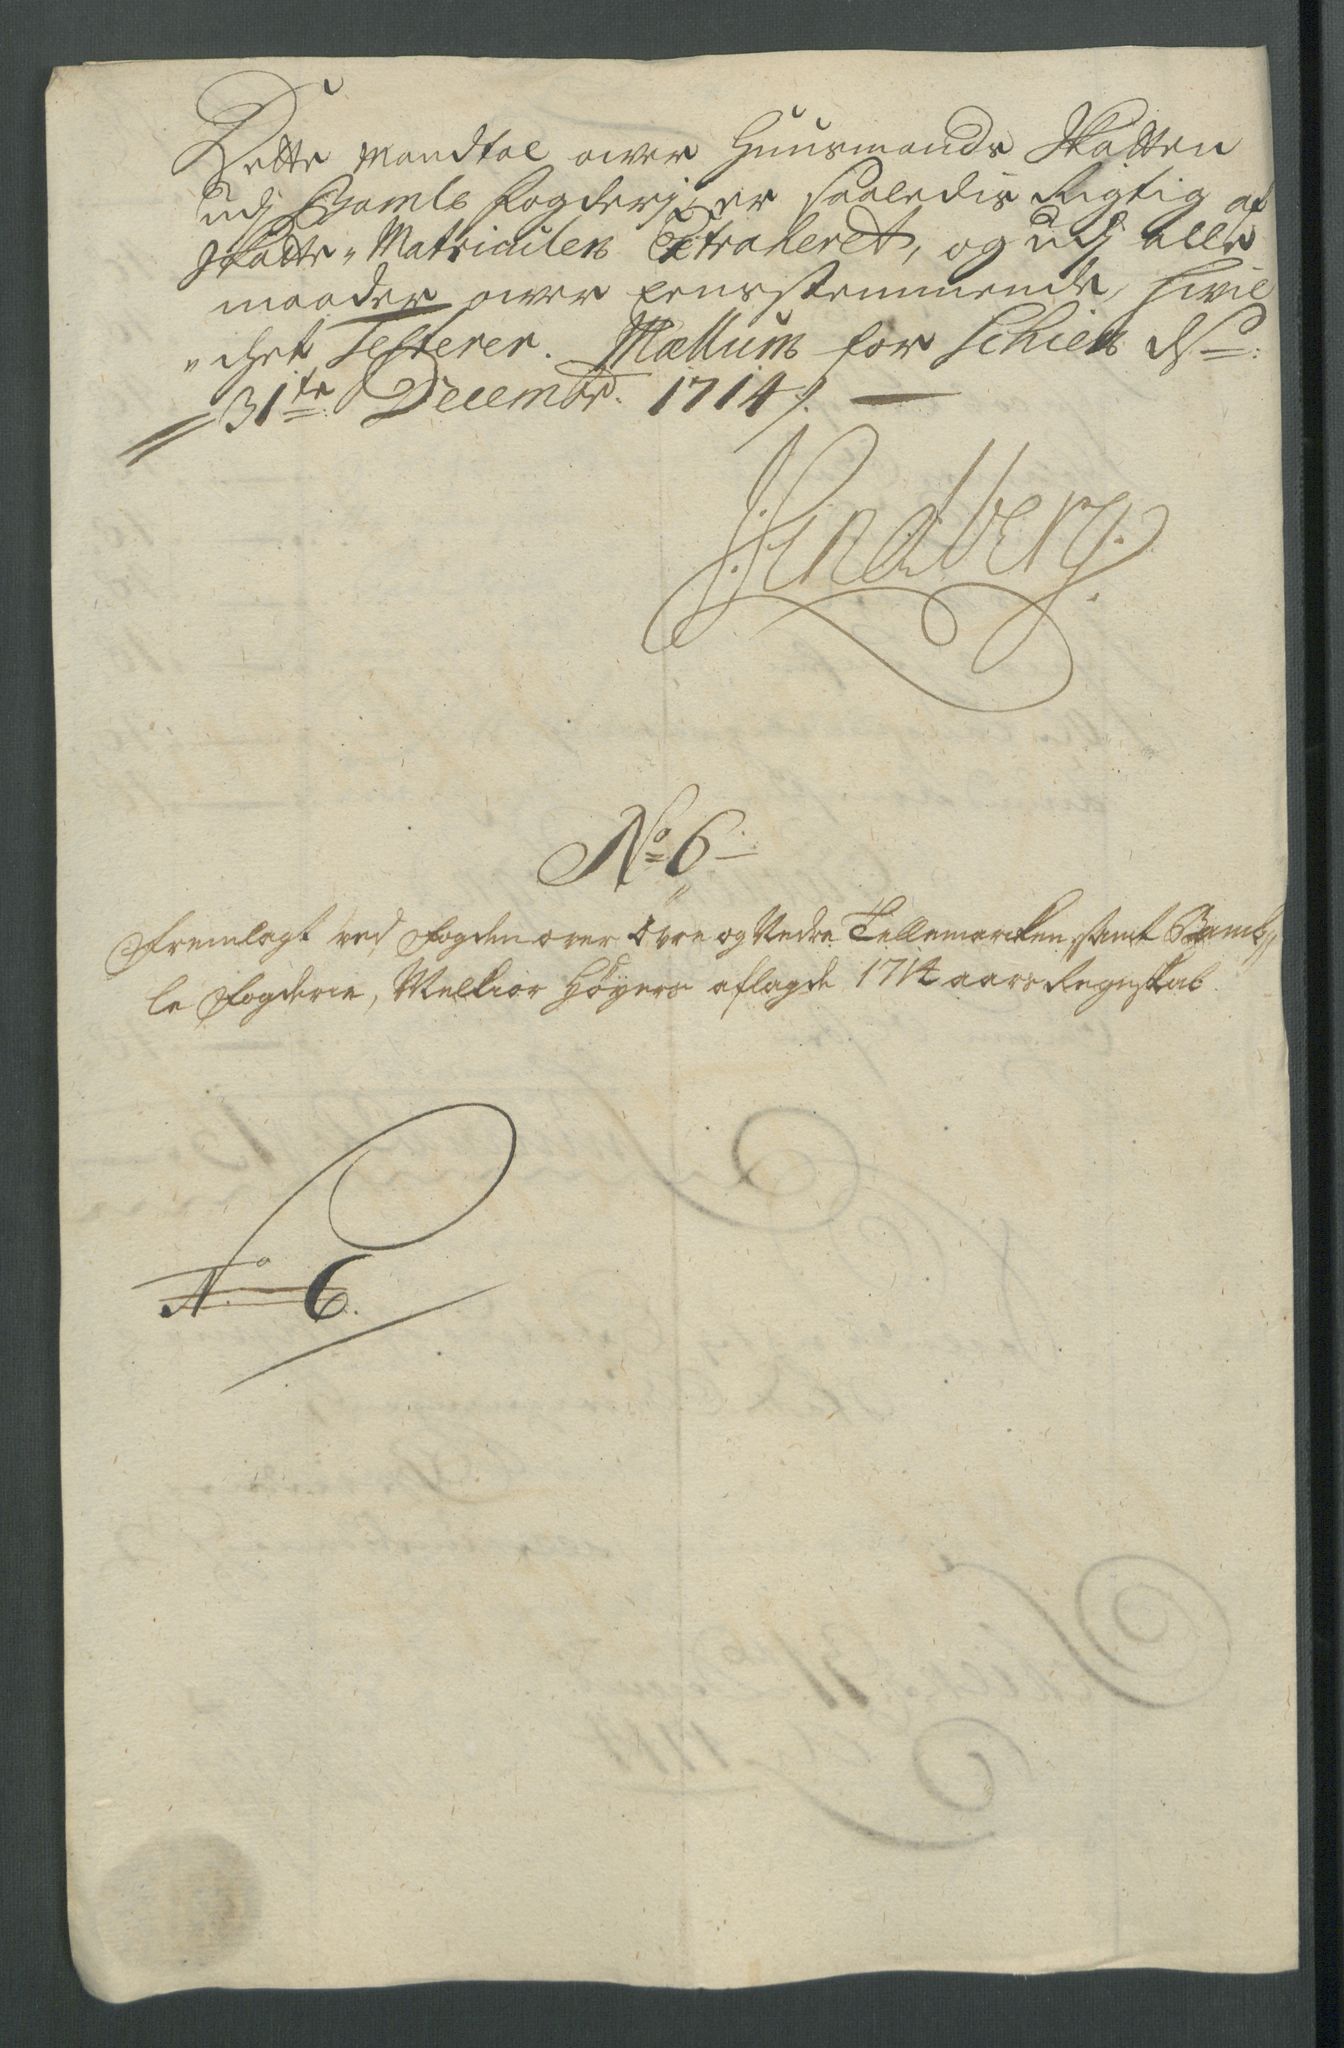 Dette Mandtal over Huusmands Skatten
udj Bamle Fogderj, er saaledis Rigtig af
Skatte-Matriculen Extraheret, og udj alle
maader over Eensstemmende, hvil
"chet Testerer. Mællum for Schien d:
31te Decembr. 1714.
J. Lindberg.
No. 6
Fremlagt ved Fogden over Øvre og Nedre Tellemarcken samt Bamb
le Fogderie, Melkior Høyers aflagde 1714 aars Regnskab
No. 6.